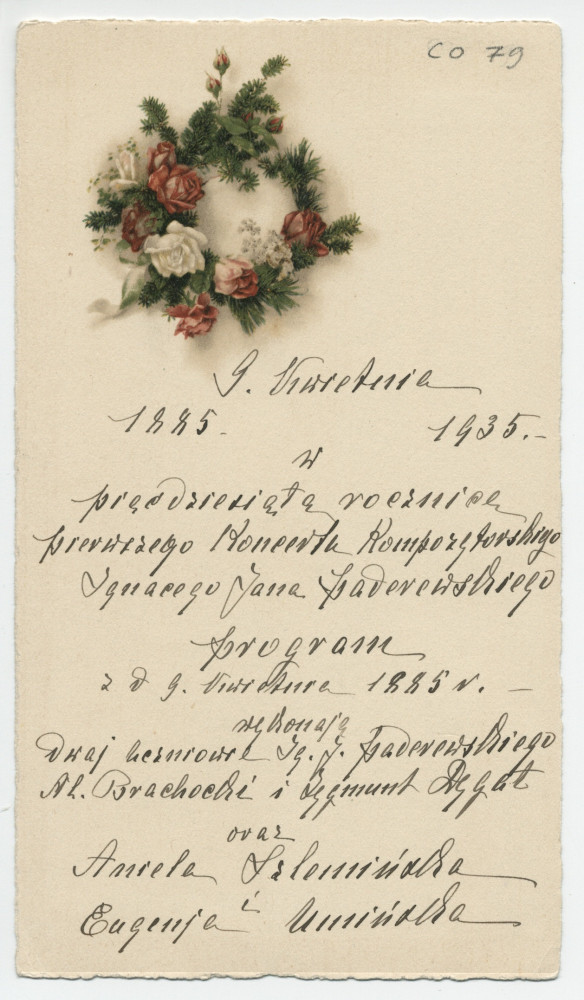 CO 79
9. Kwietnia
1885. 1935.-
w
pięćdziesiątą rocznicę
pierwszego Koncertu Kompozytorskiego
Ignacego Jana Paderewskiego
program
z d 9. Kwietnia 1885 r. -
wykonają
dwaj uczniowie Ig. J. Paderewskiego
Al. Brachocki i Zygmunt Dygat
oraz
Aniela Szlemińska
i
Eugenja Umińska